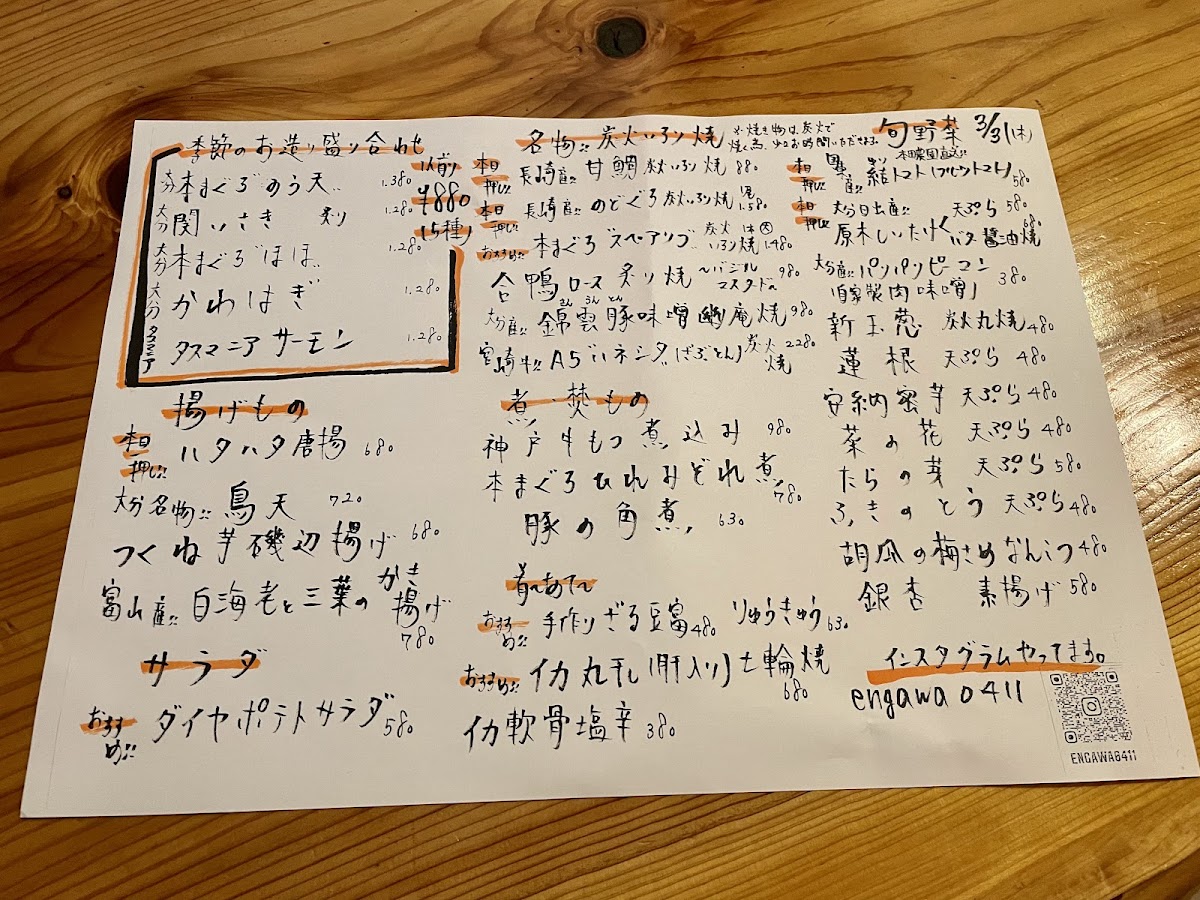 季節のお造り盛り合わせ
1人前より
¥880
(5種)
大分 本まぐろのう天 1.380
大分 関いさき 炙り 1.280
大分 本まぐろほほ 1.280
大分 かわはぎ 1.280
タスマニア タスマニアサーモン 1.280
揚げもの
本日一押し!! ハタハタ唐揚 680
大分名物!! 鳥天 720
つくね芋磯辺揚げ 680
富山産!! 白海老と三葉のかき揚げ 780
サラダ
おすすめ!! ダイヤポテトサラダ 580
名物!! 炭火いろり焼
※焼き物は、炭火で
焼く為、少々お時間いただきます。
本日一押し!! 長崎産!! 甘鯛 炭火いろり焼 880
本日一押し!! 長崎産!! のどぐろ 炭火いろり焼 1尾 1.580
おすすめ!! 本まぐろスペアリブ 炭火いろり焼 1本 1.480
合鴨ロース 炙り焼 〜バジルマスタード〜 980
大分産!! 錦雲豚味噌幽庵焼 980
きん うん とん
宮崎牛!! A5 ハネシタ(ざぶとん) 炭火焼 2280
煮・焚もの
神戸牛もつ煮込み 980
本まぐろひれみぞれ煮 780
豚の角煮 630
肴〜あて〜
おすすめ!! 手作りざる豆富 480
りゅうきゅう 630
おすすめ!! イカ丸干(肝入り)七輪焼 680
イカ軟骨塩辛 380
旬野菜 3/31(木)
本田農園直送!!
本日一押し!! 産!! トマト(フルーツトマト) 580
本日一押し!! 大分日出産!! 原木しいたけ 天ぷら 580
バター醤油焼 680
大分産!! パリパリピーマン 380
(自家製肉味噌)
新玉葱 炭火丸焼 480
蓮根 天ぷら 480
安納蜜芋 天ぷら 480
菜の花 天ぷら 480
たらの芽 天ぷら 580
ふきのとう 天ぷら 480
胡瓜の梅さめなんこつ 480
銀杏 素揚げ 580
インスタグラムやってます。
engawa0411
ENGAWA0411